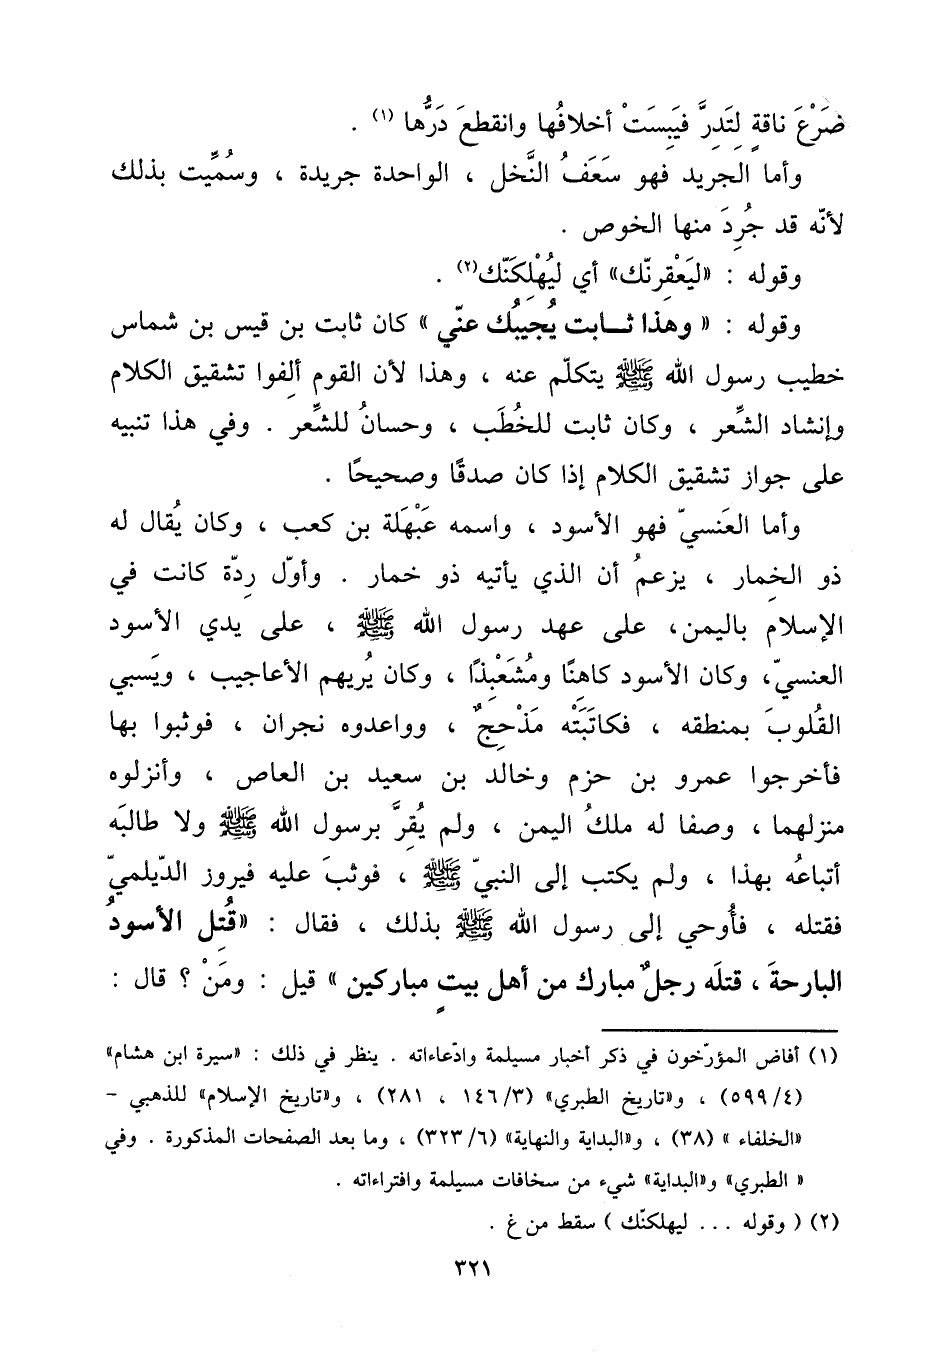 ضَرْعَ ناقةٍ لِتَدِرَّ فيَبِسَتْ أخلافُها وانقطعَ دَرُّها (١) .
وأما الجريد فهو سَعَفُ النَّخل ، الواحدة جريدة ، وسُمِّيت بذلك
لأنّه قد جُرِدَ منها الخوص .
وقوله : «ليَعْقِرنّك» أي ليُهْلِكَنّك(٢) .
وقوله : « وهذا ثــابت يُجيبُك عنّي » كان ثابت بن قيس بن شماس
خطيب رسول الله ﷺ يتكلّم عنه ، وهذا لأن القوم ألِفوا تشقيق الكلام
وإنشاد الشِّعر ، وكان ثابت للخُطَب ، وحسانُ للشِّعر . وفي هذا تنبيه
على جواز تشقيق الكلام إذا كان صدقًا وصحيحًا .
وأما العَنسيّ فهو الأسود ، واسمه عَبْهَلة بن كعب ، وكان يُقال له
ذو الخِمار ، يزعمُ أن الذي يأتيه ذو خمار . وأوّل ردِّة كانت في
الإسلام باليمن، على عهد رسول الله ﷺ ، على يدي الأسود
العنسيّ، وكان الأسود كاهنًا ومُشَعْبِذًا ، وكان يُريهم الأعاجيب ، ويَسبي
القُلوبَ بمنطقه ، فكاتَبَتْه مَذْحِجٌ ، وواعدوه نجران ، فوثبوا بها
فأخرجوا عمرو بن حزم وخالد بن سعيد بن العاص ، وأنزلوه
منزلهما ، وصفا له ملكُ اليمن ، ولم يُقِرَّ برسول الله ﷺ ولا طالبَه
أتباعُه بهذا ، ولم يكتب إلى النبيّ ﷺ ، فوثبَ عليه فيروز الدّيلميّ
فقتله ، فأُوحي إلى رسول الله ﷺ بذلك ، فقال : «قُتِل الأسودُ
البارحةَ ، قتلَه رجلٌ مبارك من أهل بيتٍ مباركين » قيل : ومَنْ ؟ قال :
(١) أفاض المؤرّخون في ذكر أخبار مسيلمة وادّعاءاته . ينظر في ذلك : «سيرة ابن هشام»
(٥٩٩/٤) ، و«تاريخ الطبري» (١٤٦/٣ ، ٢٨١) ، و«تاريخ الإسلام» للذهبي –
«الخلفاء » (٣٨) ، و«البداية والنهاية» (٣٢٣/٦) ، وما بعد الصفحات المذكورة . وفي
« الطبري» و«البداية» شيء من سخافات مسيلمة وافتراءاته .
(٢) ( وقوله ... ليهلكنّك ) سقط من غ .
٣٢١